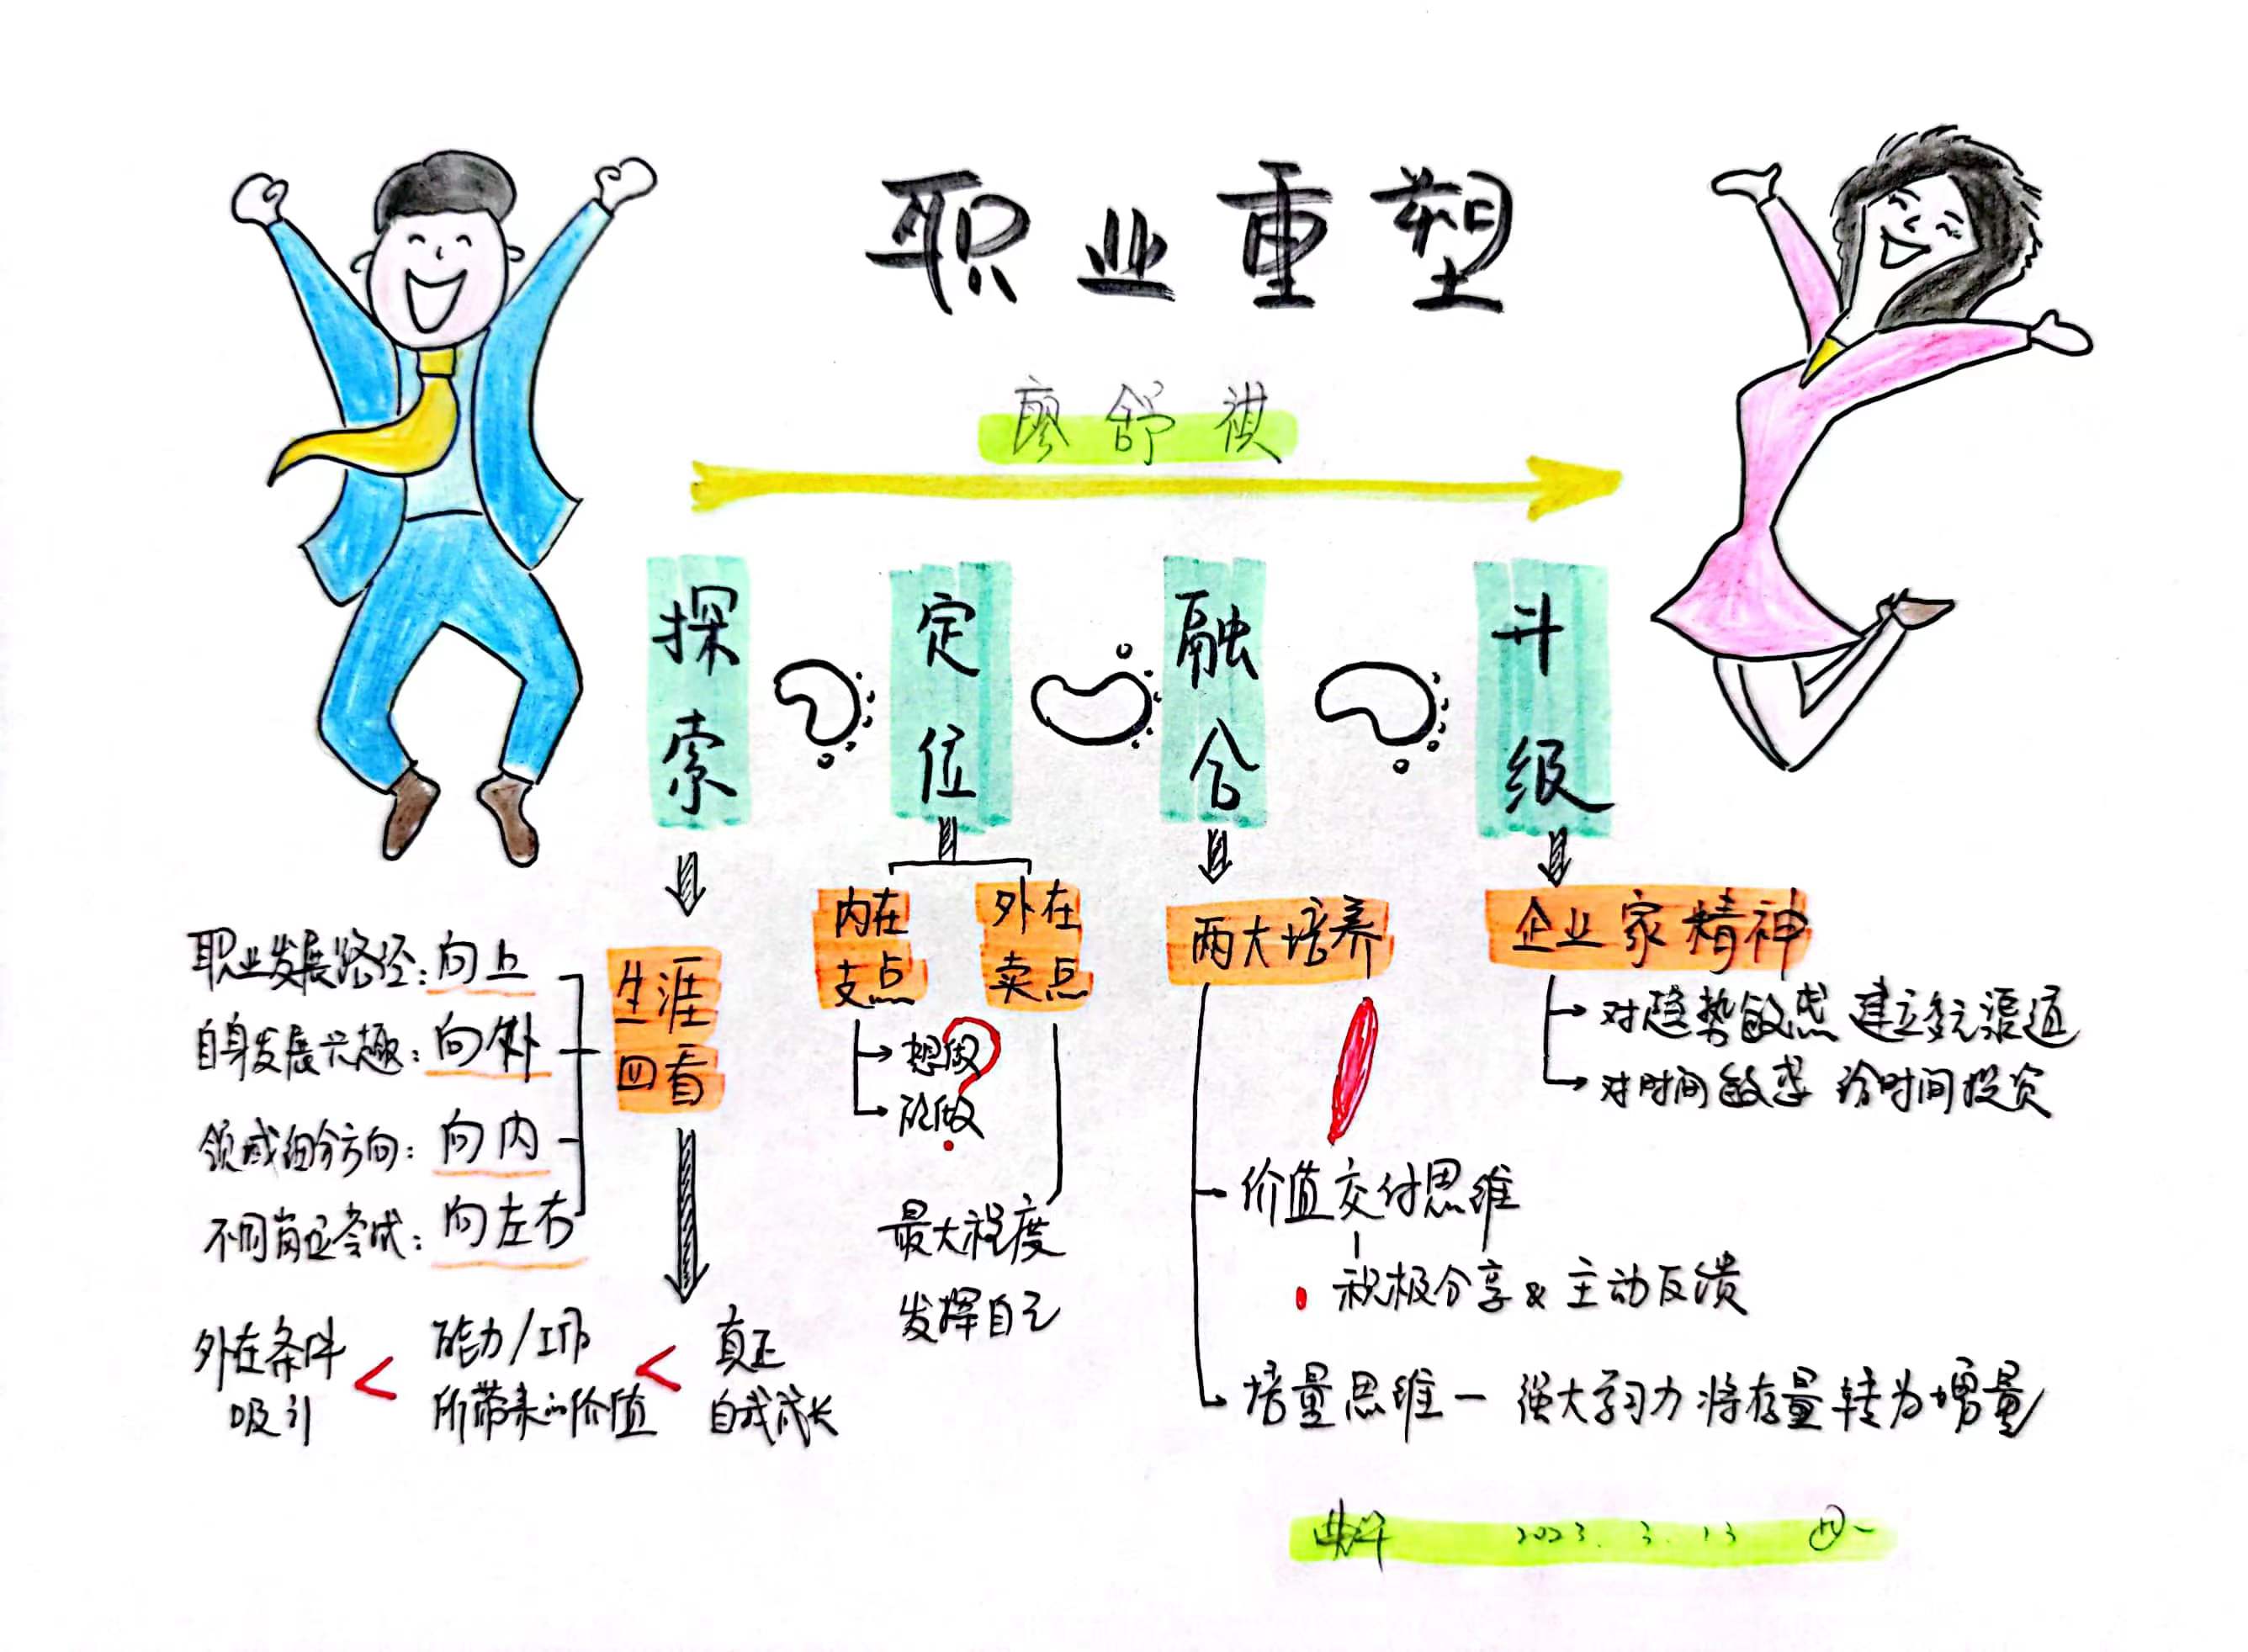 职业重塑
廖舒祺
探索
定位
融合
升级
生涯
四看
职业发展路径：向上
自身发展兴趣：向外
领域细分方向：向内
不同岗位尝试：向左右
外在条件
吸引
<
能力/工作
所带来的价值
<
真正
自我成长
内在
支点
想做
能做
?
外在
卖点
最大程度
发挥自己
两大培养
价值交付思维
积极分享&主动反馈
增量思维一强大学习力将存量转为增量
企业家精神
对趋势敏感 建立多元渠道
对时间敏感 给时间投资
2023.3.13